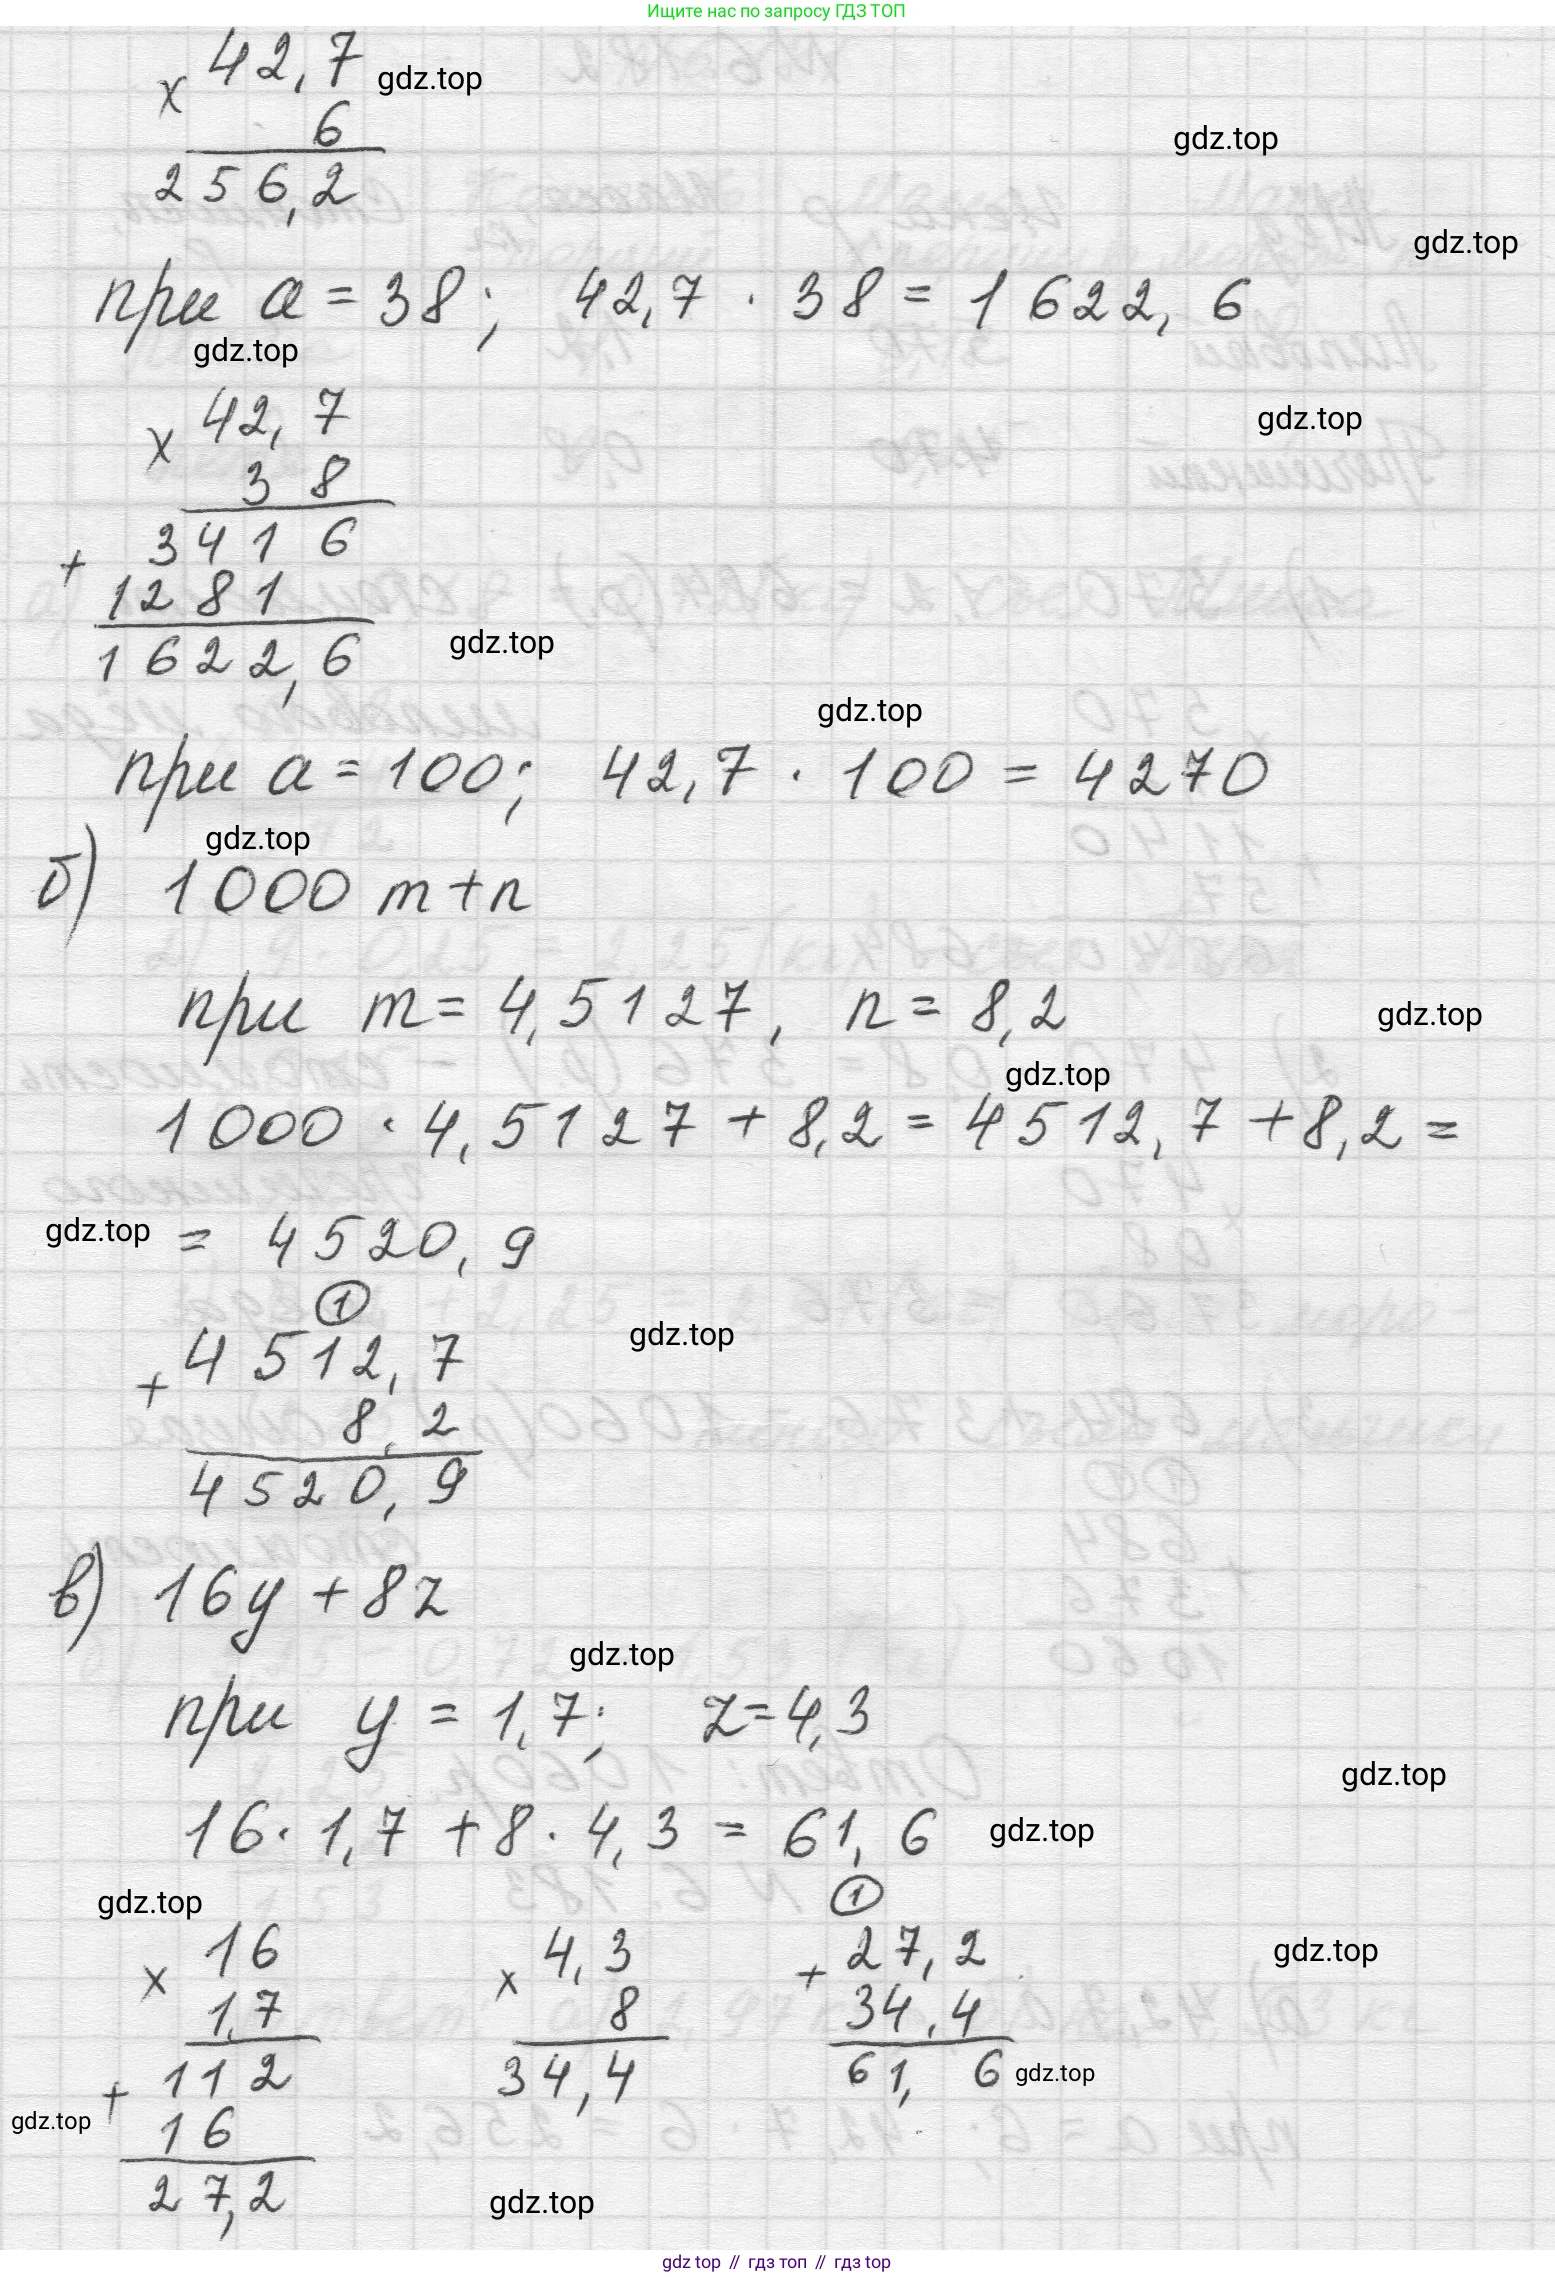 Ищите нас по запросу ГДЗ ТОП
× 42,7 gdz.top
6
gdz.top
256,2
gdz.top
при a = 38; 42,7 · 38 = 1622,6
gdz.top
× 42,7
gdz.top
38
3416
+ 1281
1622,6
gdz.top
gdz.top
при a = 100; 42,7 · 100 = 4270
gdz.top
б) 1000 m + n
при m = 4,5127, n = 8,2
gdz.top
gdz.top
1000 · 4,5127 + 8,2 = 4512,7 + 8,2 =
gdz.top = 4520,9
1
gdz.top
+ 4512,7
8,2
4520,9
в) 16y + 8z
gdz.top
при y = 1,7; z = 4,3
gdz.top
16 · 1,7 + 8 · 4,3 = 61,6 gdz.top
gdz.top 1
× 16 × 4,3 + 27,2 gdz.top
1,7 8 34,4
112 34,4 61,6 gdz.top
gdz.top + 16
27,2 gdz.top
gdz top // гдз топ // гдз top